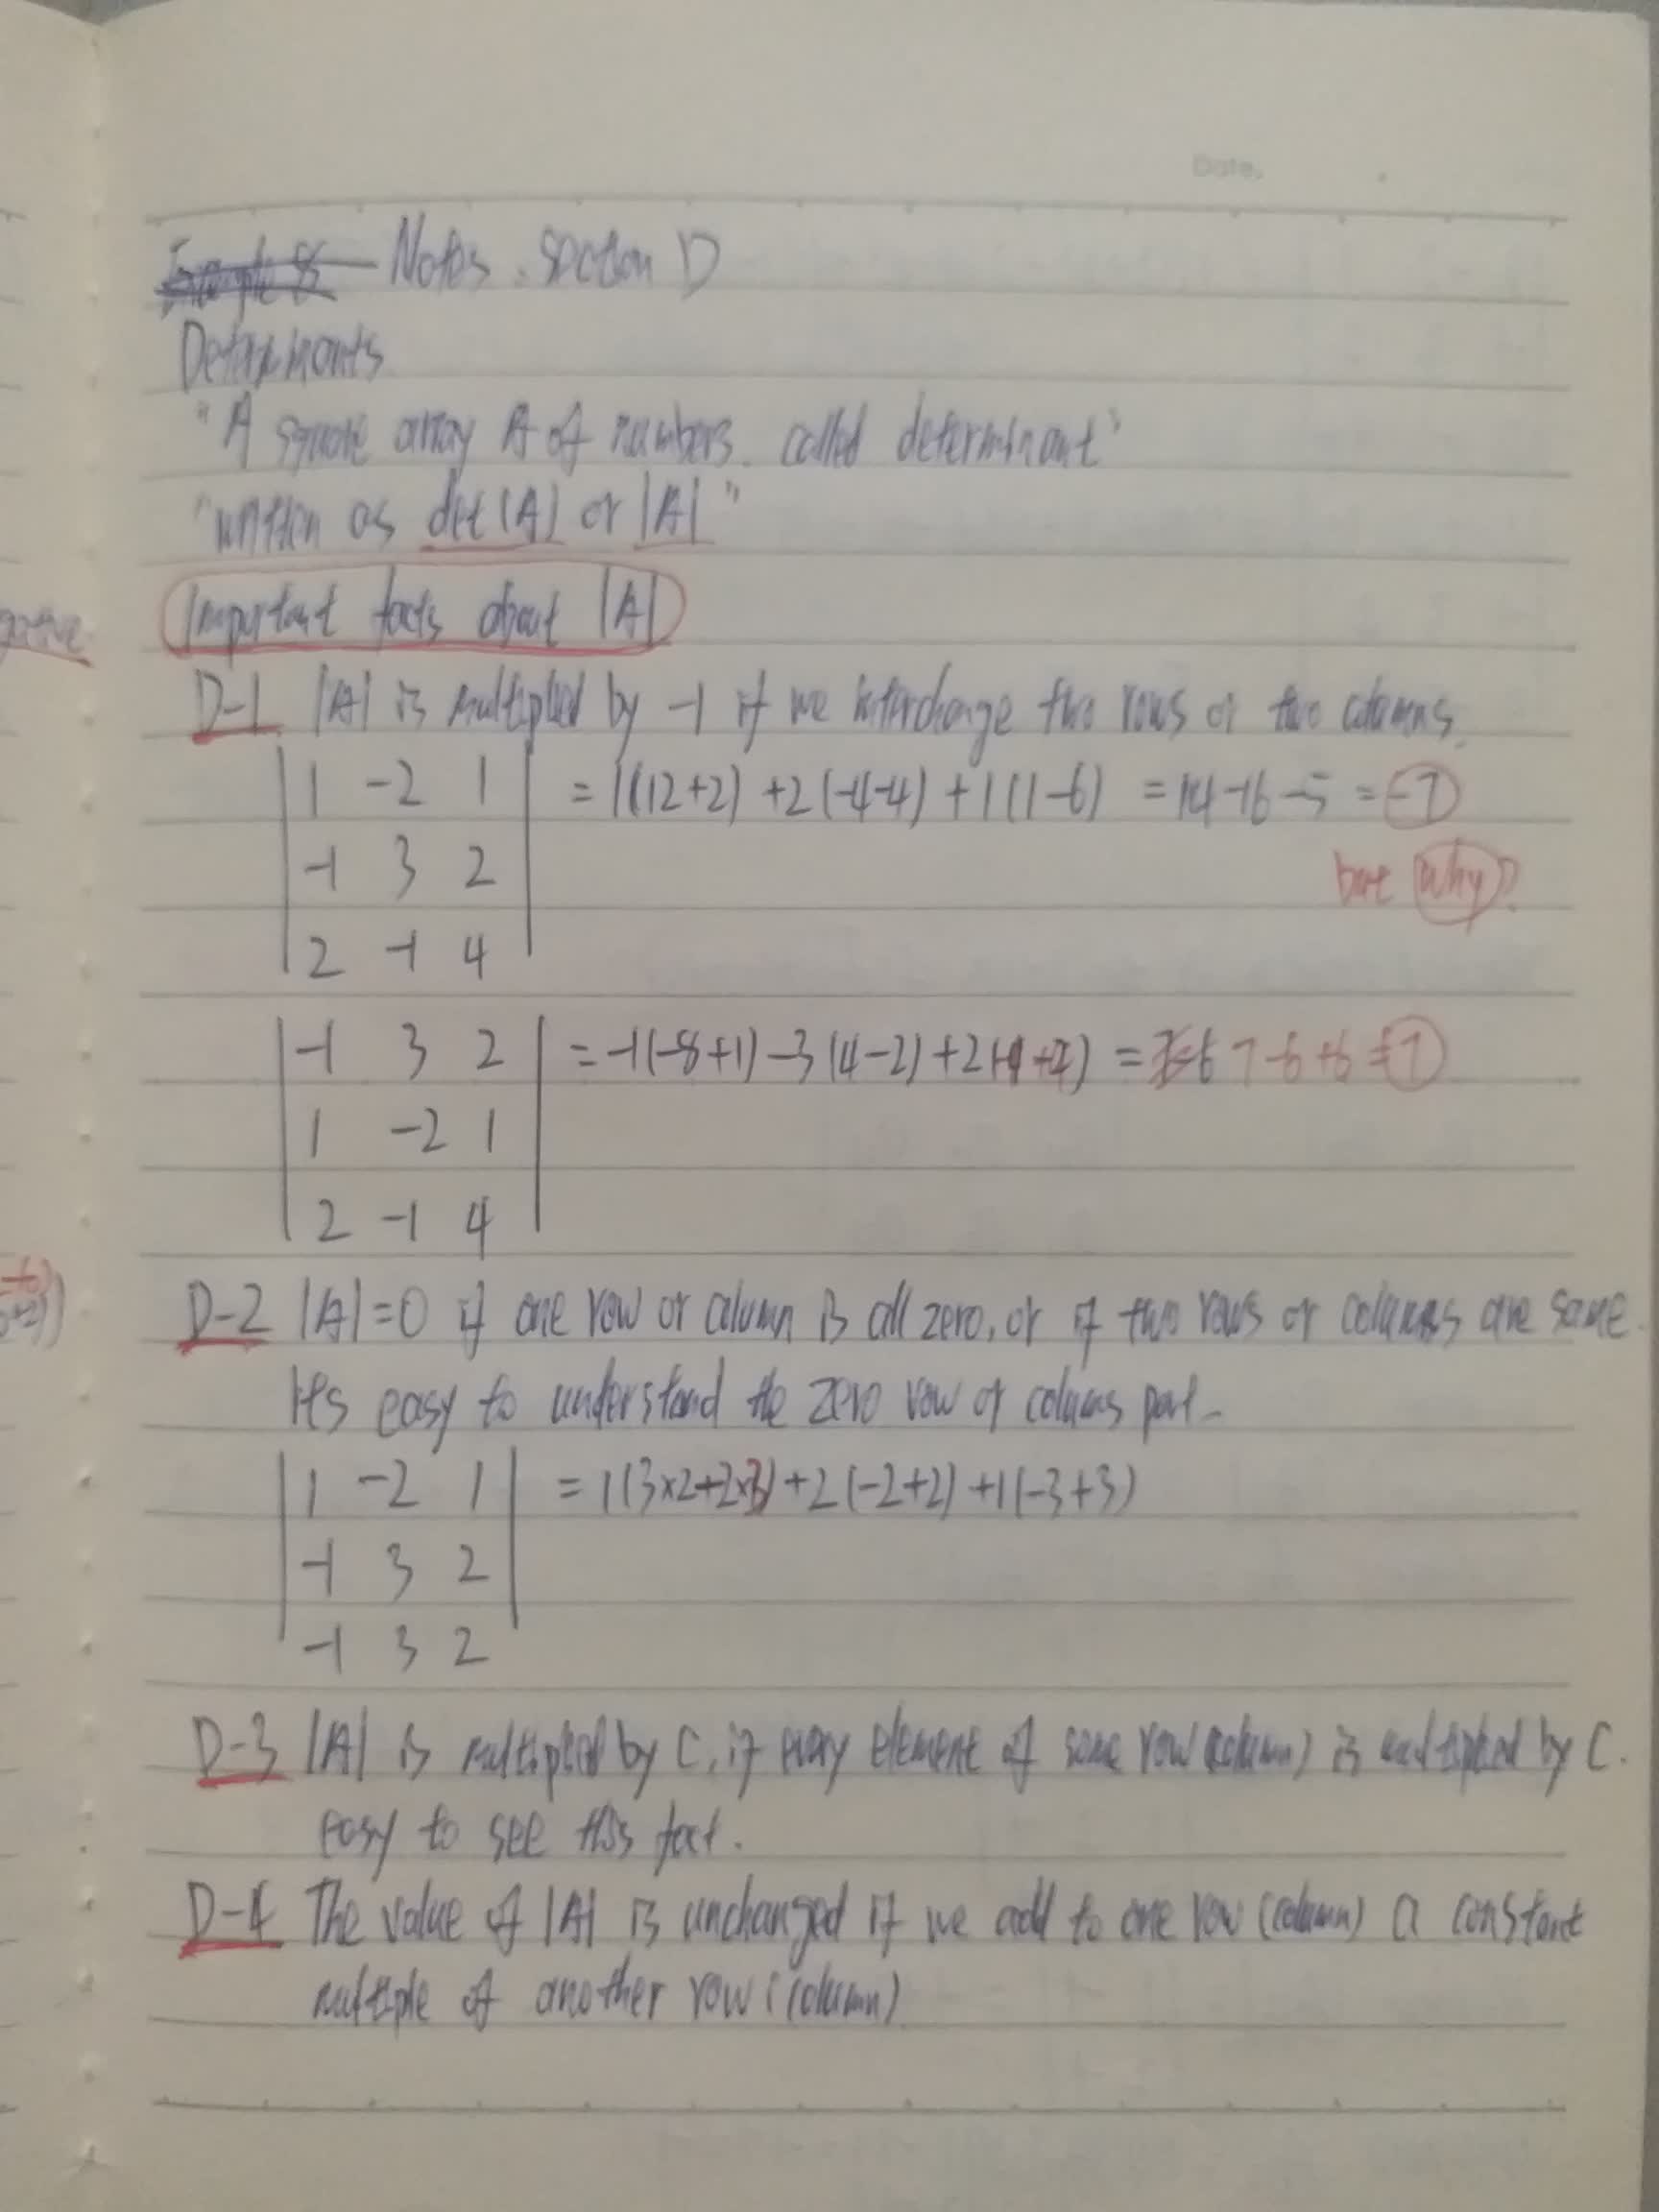 Date.
Notes. Section D
Determinants
"A square array A of numbers. called determinant"
"written as det(A) or |A|"
Important facts about |A|
D-1 |A| is multiplied by -1 if we interchange two rows or two columns.
1 -2 1 = 1(12+2) +2(-4-4) +1(1-6) = 14-16-5 = -7
-1 3 2 but why?
2 -1 4
-1 3 2 = -1(-8+1) -3(4-2) +2(-1+4) = 7-6+6 = 7
1 -2 1
2 -1 4
D-2 |A|=0 if one row or column is all zero, or if two rows or columns are same.
It's easy to understand the zero row or columns part.
1 -2 1 = 1(3×2+2×3) +2(-2+2) +1(-3+3)
-1 3 2
-1 3 2
D-3 |A| is multiplied by C, if every element of some row (column) is multiplied by C.
easy to see this fact.
D-4 The value of |A| is unchanged if we add to one row (column) a constant
multiple of another row (column)